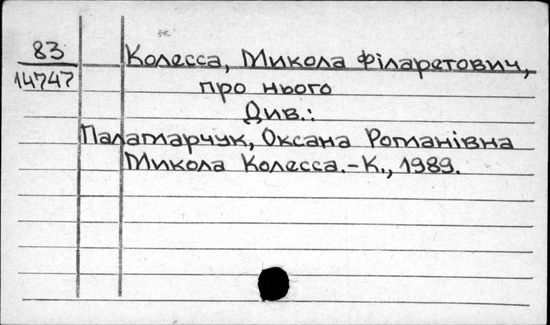 83
14747
Колесса, Микола Філаретович,
про нього
Див.:
Паламарчук, Оксана Романівна
Микола Колесса.-К., 1989.